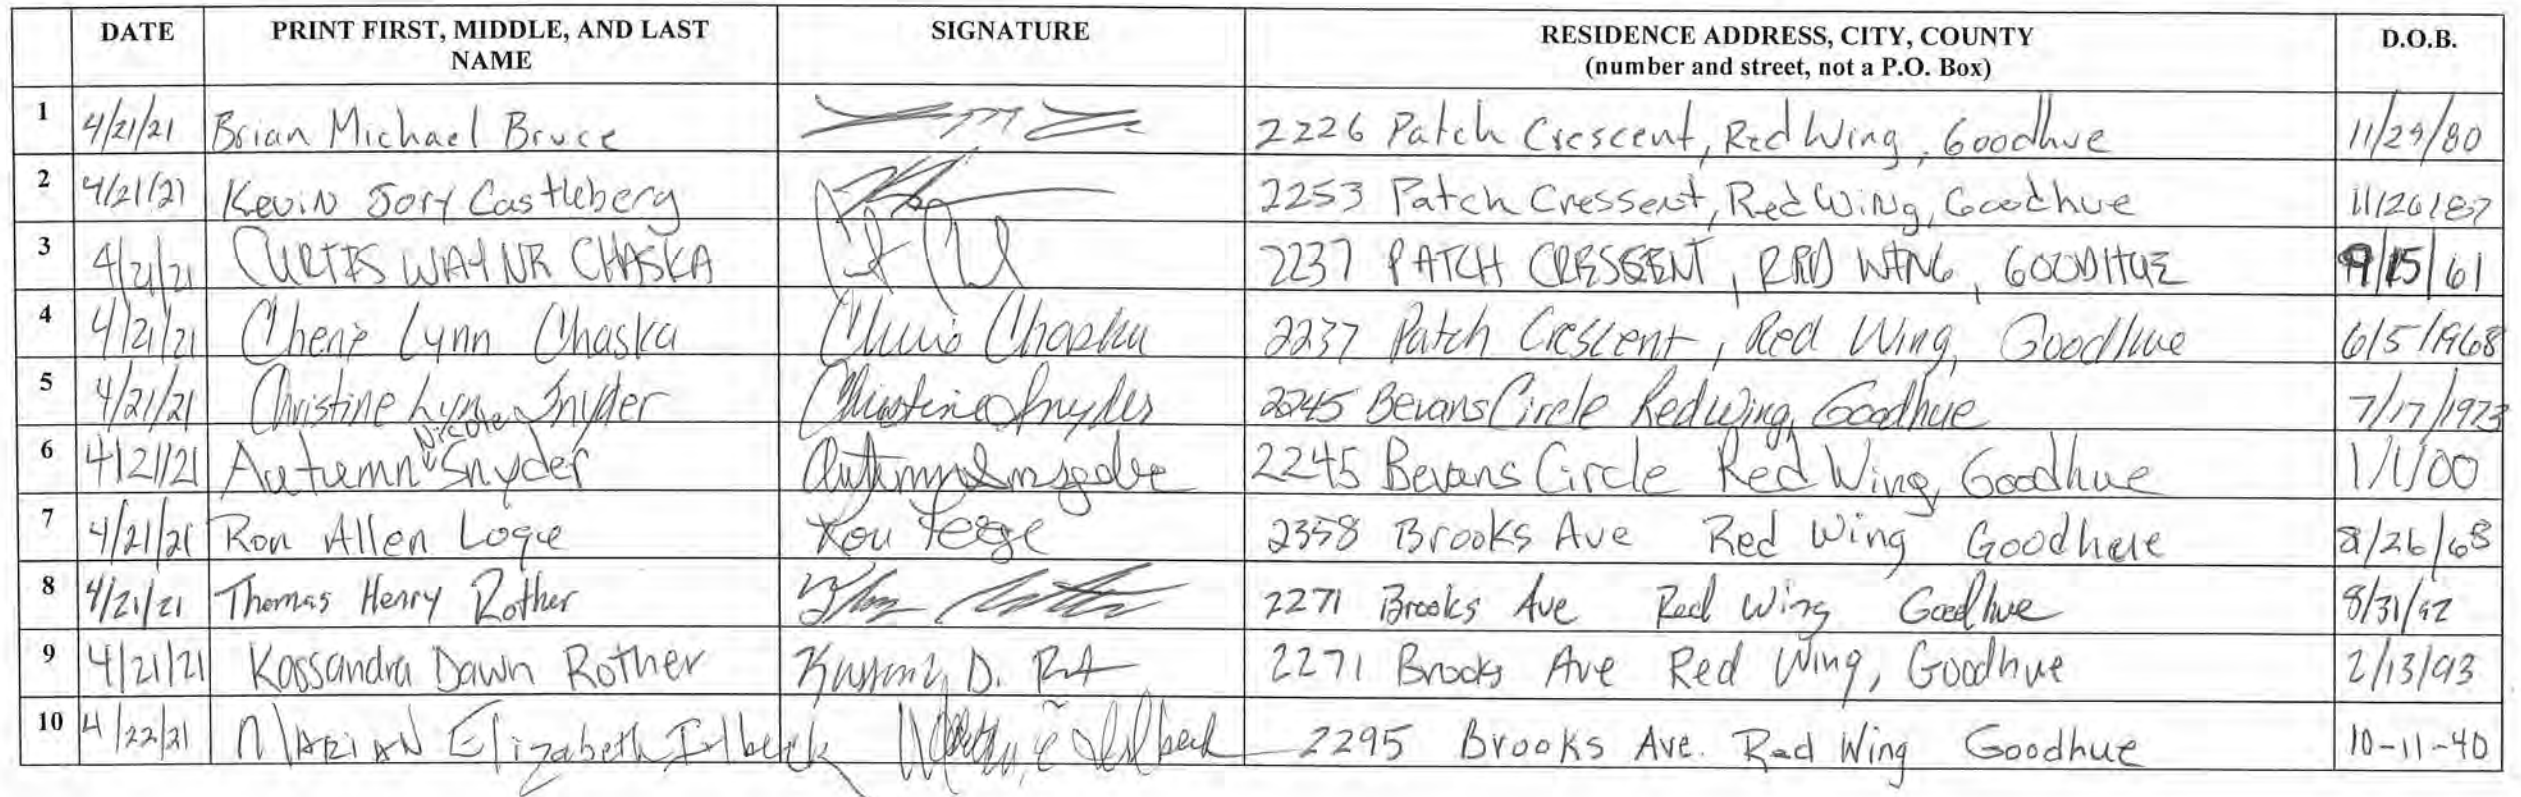 DATE PRINT FIRST, MIDDLE, AND LAST NAME SIGNATURE RESIDENCE ADDRESS, CITY, COUNTY (number and street, not a P.O. Box) D.O.B.
1 4/21/21 Brian Michael Bruce 2226 Patch Crescent, Red Wing, Goodhue 11/29/80
2 4/21/21 Kevin Jory Castleberg 2253 Patch Cressent, Red Wing, Goodhue 11/26/87
3 4/21/21 CURTIS WAYNE CHASKA 2237 PATCH CRESSENT, RED WING, GOODHUE 9/15/61
4 4/21/21 Cherie Lynn Chaska Cherie Chaska 2237 Patch Crescent, Red Wing, Goodhue 6/5/1968
5 4/21/21 Christine Lynn Snyder Christine Snyder 2245 Bevans Circle Red Wing, Goodhue 7/17/1973
6 4/21/21 Autumn Nicole Snyder Autumn 2245 Bevans Circle Red Wing, Goodhue 1/1/00
7 4/21/21 Ron Allen Loge Ron 2358 Brooks Ave Red Wing Goodhue 8/26/68
8 4/21/21 Thomas Henry Rother 2271 Brooks Ave Red Wing Goodhue 8/31/92
9 4/21/21 Kassandra Dawn Rother D. 2271 Brooks Ave Red Wing, Goodhue 2/13/93
10 4/22/21 MARIAN Elizabeth 2295 Brooks Ave. Red Wing Goodhue 10-11-40